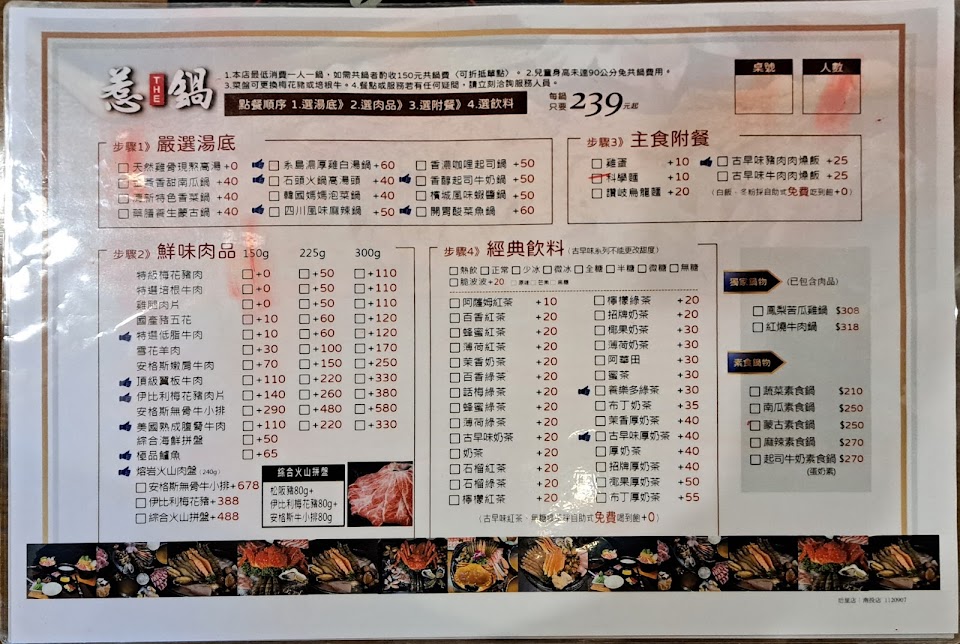 惹 THE 鍋
1.本店最低消費一人一鍋，如需共鍋者酌收150元共鍋費（可折抵單點）。2.兒童身高未達90公分免共鍋費用。
3.菜盤可更換梅花豬或培根牛。4.餐點或服務若有任何疑問，請立刻洽詢服務人員。
點餐順序 1.選湯底》2.選肉品》3.選附餐》4.選飲料
每鍋只要 239元起
桌號
人數
步驟1》嚴選湯底
天然雞骨現熬高湯+0
香甜南瓜鍋 +40
特色香菜鍋 +40
藥膳養生蒙古鍋 +40
糸島濃厚雞白湯鍋+60
石頭火鍋高湯頭 +40
韓國媽媽泡菜鍋 +40
四川風味麻辣鍋 +50
香濃咖哩起司鍋 +50
香醇起司牛奶鍋 +50
檳城風味蝦醬鍋 +50
開胃酸菜魚鍋 +60
步驟3》主食附餐
雞蛋 +10
科學麵 +10
讚岐烏龍麵 +20
古早味豬肉肉燥飯 +25
古早味牛肉肉燥飯 +25
（白飯、冬粉採自助式免費吃到飽+0）
步驟2》鮮味肉品 150g 225g 300g
特級梅花豬肉 +0 +50 +110
特選培根牛肉 +0 +50 +110
雞腿肉片 +0 +50 +110
國產豬五花 +10 +60 +120
特選低脂牛肉 +10 +60 +120
雪花羊肉 +30 +100 +170
安格斯嫩肩牛肉 +70 +150 +250
頂級翼板牛肉 +110 +220 +330
伊比利梅花豬肉片 +140 +260 +380
安格斯無骨牛小排 +290 +480 +580
美國熟成腹脅牛肉 +110 +220 +330
綜合海鮮拼盤 +50
極品鱸魚 +65
熔岩火山肉盤（240g）
安格斯無骨牛小排+678
伊比利梅花豬+388
綜合火山拼盤+488
綜合火山拼盤
松阪豬80g+
伊比利梅花豬80g+
安格斯牛小排80g
步驟4》經典飲料（古早味系列不能更改甜度）
熱飲 正常 少冰 微冰 全糖 半糖 微糖 無糖
脆波波+20
阿薩姆紅茶 +10
百香紅茶 +20
蜂蜜紅茶 +20
薄荷紅茶 +20
茉香奶茶 +20
百香綠茶 +20
話梅綠茶 +20
蜂蜜綠茶 +20
薄荷綠茶 +20
古早味奶茶 +20
奶茶 +20
石榴紅茶 +20
石榴綠茶 +20
檸檬紅茶 +20
檸檬綠茶 +20
招牌奶茶 +20
椰果奶茶 +30
薄荷奶茶 +30
阿華田 +30
蜜茶 +30
養樂多綠茶 +30
布丁奶茶 +35
茉香厚奶茶 +40
古早味厚奶茶 +40
厚奶茶 +40
招牌厚奶茶 +40
椰果厚奶茶 +50
布丁厚奶茶 +55
（古早味紅茶、採自助式免費喝到飽+0）
獨家鍋物（已包含肉品）
鳳梨苦瓜雞鍋 $308
紅燒牛肉鍋 $318
素食鍋物
蔬菜素食鍋 $210
南瓜素食鍋 $250
蒙古素食鍋 $250
麻辣素食鍋 $270
起司牛奶素食鍋 $270
（蛋奶素）
1120907